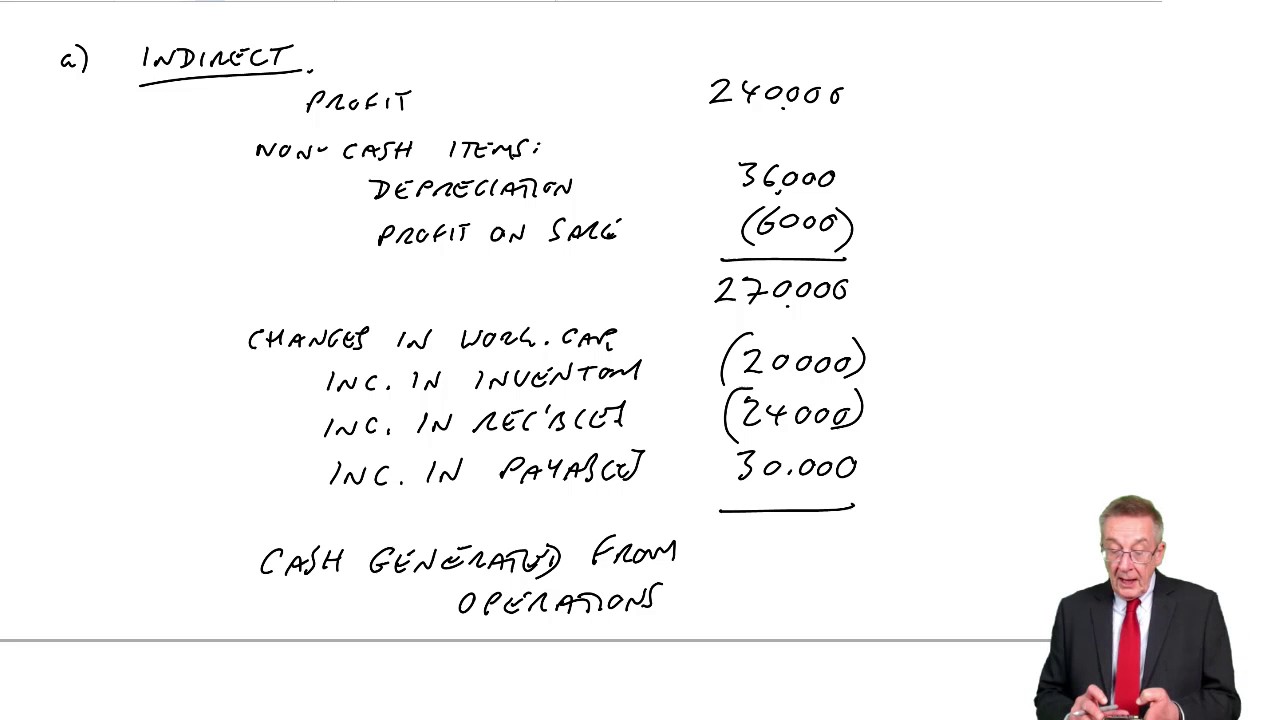 a) INDIRECT.
PROFIT 240,000
NON-CASH ITEMS:
DEPRECIATION 36,000
PROFIT ON SALE (6000)
270,000
CHANGES IN WORK. CAP.
INC. IN INVENTORY (20000)
INC. IN REC'BLES (24000)
INC. IN PAYABLES 30.000
CASH GENERATED FROM
OPERATIONS